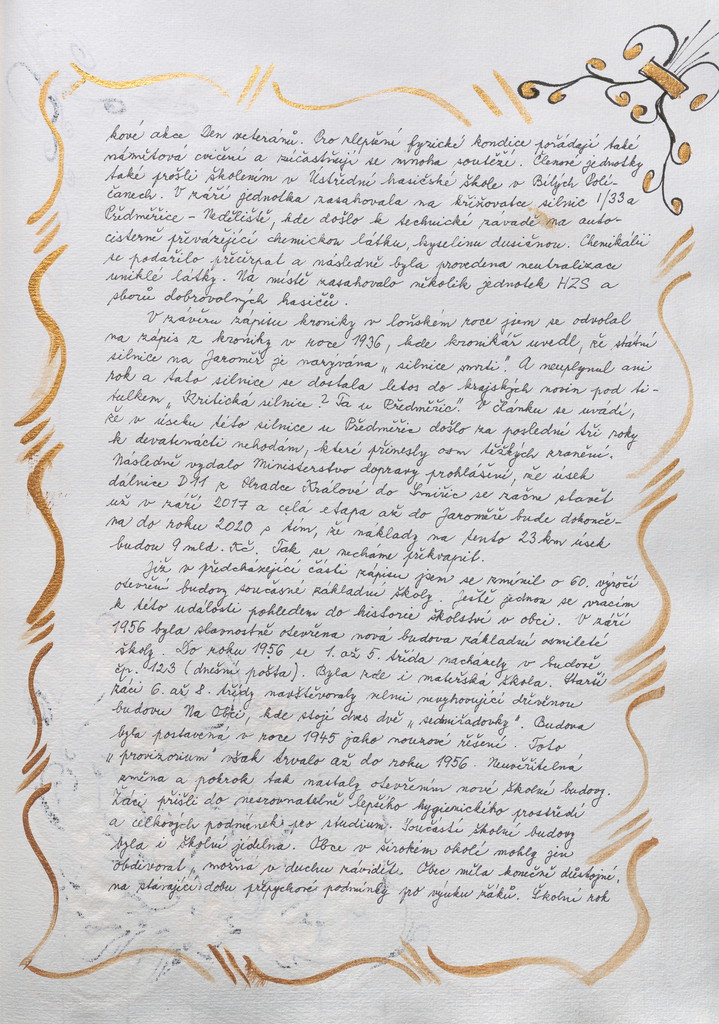 kové akce Den veteránů. Pro zlepšení fyzické kondice pořádají také
námětová cvičení a zúčastňují se mnoha soutěží. Členové jednotky
také prošli školením v Ústřední hasičské škole v Bílých Poli-
čanech. V září jednotka zasahovala na křižovatce silnic 1/33 a
Předměřice - Neděliště, kde došlo k technické závadě na auto-
cisterně převážející chemickou látku, kyselinu dusičnou. Chemikálii
se podařilo přečerpat a následně byla provedena neutralizace
uniklé látky. Na místě zasahovalo několik jednotek HZS a
sborů dobrovolných hasičů.
V závěru zápisu kroniky v loňském roce jsem se odvolal
na zápis z kroniky v roce 1936, kde kronikář uvedl, že státní
silnice na Jaroměř je nazývána „silnice smrti". A neuplynul ani
rok a tato silnice se dostala letos do krajských novin pod ti-
tulkem „Kritická silnice? Ta u Předměřic." V článku se uvádí,
že v úseku této silnice u Předměřic došlo za poslední tři roky
k devatenácti nehodám, které přinesly osm těžkých zranění.
Následně vydalo Ministerstvo dopravy prohlášení, že úsek
dálnice D11 z Hradce Králové do Smiřic se začne stavět
už v září 2017 a celá etapa až do Jaroměře bude dokonče-
na do roku 2020 s tím, že náklady na tento 23 km úsek
budou 9 mld. Kč. Tak se nechame překvapit.
Již v předcházející části zápisu jsem se zmínil o 60. výročí
otevření budovy současné základní školy. Ještě jednou se vracím
k této události pohledem do historie školství v obci. V září
1956 byla slavnostně otevřena nová budova základní osmileté
školy. Do roku 1956 se 1. až 5. třída nacházely v budově
čp. 123 (dnešní pošta). Byla zde i mateřská škola. Starší
žáci 6. až 8. třídy navštěvovaly velmi nevyhovující dřevěnou
budovu Na Obci, kde stojí dnes dvě „sedmiřadovky". Budova
byla postavená v roce 1945 jako nouzové řešení. Toto
„provizorium" však trvalo až do roku 1956. Neuvěřitelná
změna a pokrok tak nastaly otevřením nové školní budovy.
Žáci přišli do nesrovnatelně lepšího hygienického prostředí
a celkových podmínek pro studium. Součástí školní budovy
byla i školní jídelna. Obce v širokém okolí mohly jen
obdivovat, možná v duchu závidět. Obec měla konečně důstojné,
na stávající dobu přepychové podmínky pro výuku žáků. Školní rok